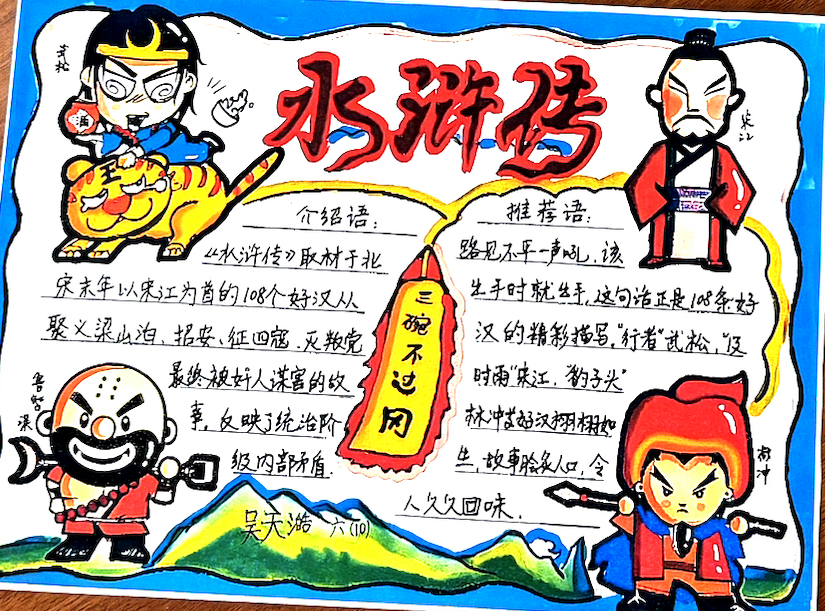 水浒传
武松
酒
王
宋江
介绍语：
《水浒传》取材于北
宋末年以宋江为首的108个好汉从
聚义梁山泊、招安、征四寇、灭叛党
最终被奸人谋害的故
事，反映了统治阶
级内部矛盾.
三碗不过冈
推荐语：
路见不平一声吼，该
出手时就出手，这句话正是108条好
汉的精彩描写，"行者"武松，"及
时雨"宋江，"豹子头"
林冲等好汉栩栩如
生，故事脍炙人口，令
人久久回味.
鲁智
深
林冲
吴天澔 六(10)